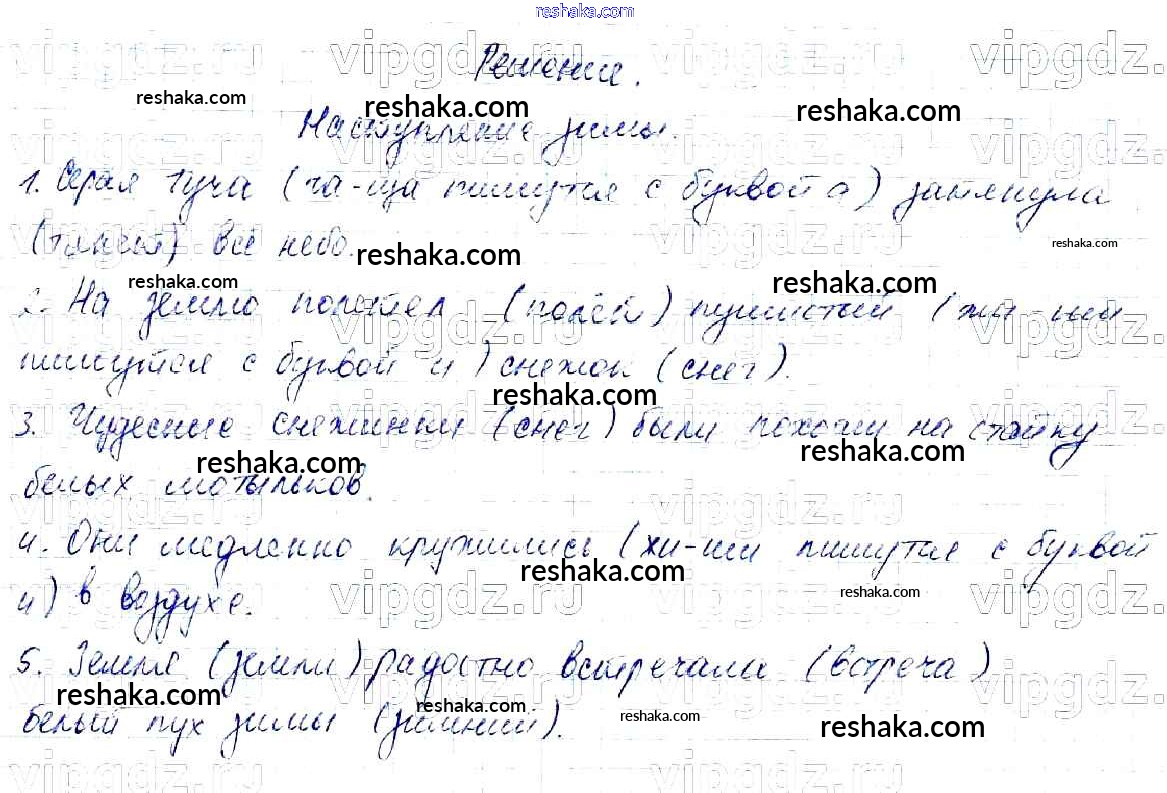 reshaka.com
Решение.
Наступление зимы.
1. Серая туча (ча-ща пишутся с буквой а) затянула
(тянет) всё небо.
2. На землю полетел (полёт) пушистый (жи-ши
пишутся с буквой и) снежок (снег).
3. Чудесные снежинки (снег) были похожи на стайку
белых мотыльков.
4. Они медленно кружились (жи-ши пишутся с буквой
и) в воздухе.
5. Земля (земли) радостно встречала (встреча)
белый пух зимы (зимний).